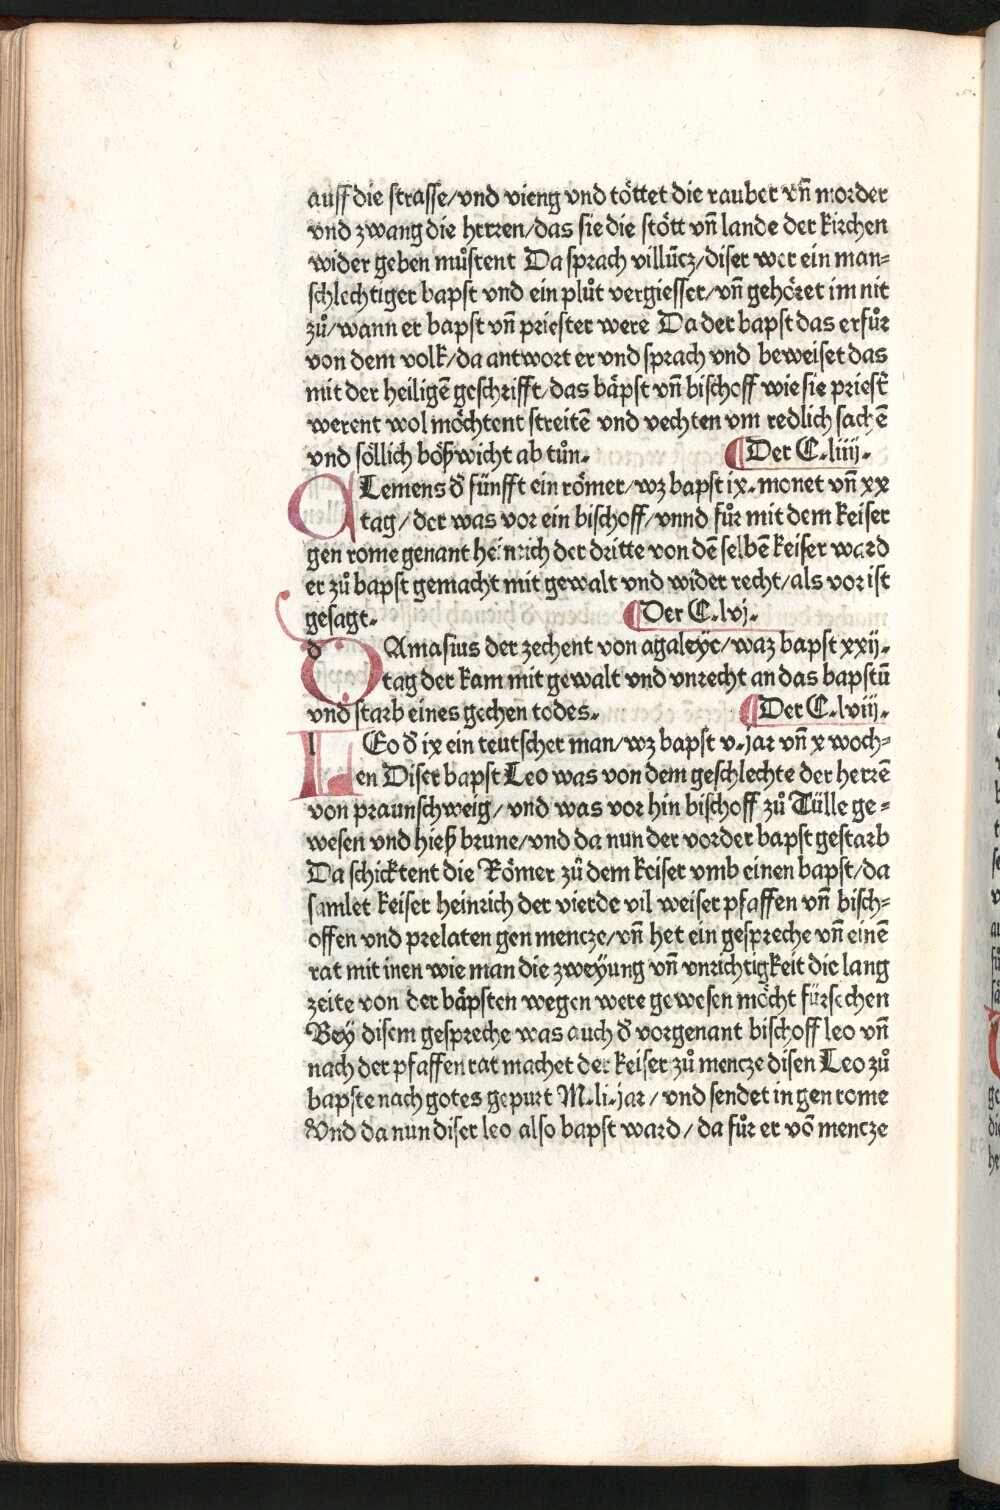 auff die strasse/vnd vieng vnd töttet die rauber vñ morder
vnd zwang die herren/das sie die stött vñ lande der kirchen
wider geben můstent Da sprach villücz/diser wer ein man=
schlechtiger bapst vnd ein plůt vergiesser/vñ gehöret im nit
zů/wann er bapst vñ priester were Da der bapst das erfůr
von dem volk/da antwort er vnd sprach vnd beweiset das
mit der heiligē geschrifft/das bäpst vñ bischoff wie sie priest̄
werent wol möchtent streitē vnd vechten vm redlich sachē
vnd söllich bößwicht ab tůn. ¶Der C.liiij.
CLemens ð fünfft ein römer/wz bapst ix.monet vñ xx
tag/der was vor ein bischoff/vnnd fůr mit dem keiser
gen rome genant heinrich der dritte von dē selbē keiser ward
er zů bapst gemacht mit gewalt vnd wider recht/als vor ist
gesagt. ¶Der C.lvj.
DAmasius der zechent von agaleyc/waz bapst xxij.
tag der kam mit gewalt vnd vnrecht an das bapstū
vnd starb eines gechen todes. ¶Der C.lviij.
LEo ð ix ein teutscher man/wz bapst v.jar vñ x woch=
en Diser bapst Leo was von dem geschlechte der herrē
von praunschweig/vnd was vor hin bischoff zů Tülle ge=
wesen vnd hieß brune/vnd da nun der vorder bapst gestarb
Da schicktent die Römer zů dem keiser vmb einen bapst/da
samlet keiser heinrich der vierde vil weiser pfaffen vñ bisch=
offen vnd prelaten gen mencze/vñ het ein gespreche vñ einē
rat mit inen wie man die zweyung vñ vnrichtigkeit die lang
zeite von der bäpsten wegen were gewesen möcht fürsechen
Bey disem gespreche was auch ð vorgenant bischoff leo vñ
nach der pfaffen rat machet der keiser zů mencze disen Leo zů
bapste nach gotes gepurt M.li.jar/vnd sendet in gen rome
Vnd da nun diser leo also bapst ward/da fůr er vō mencze